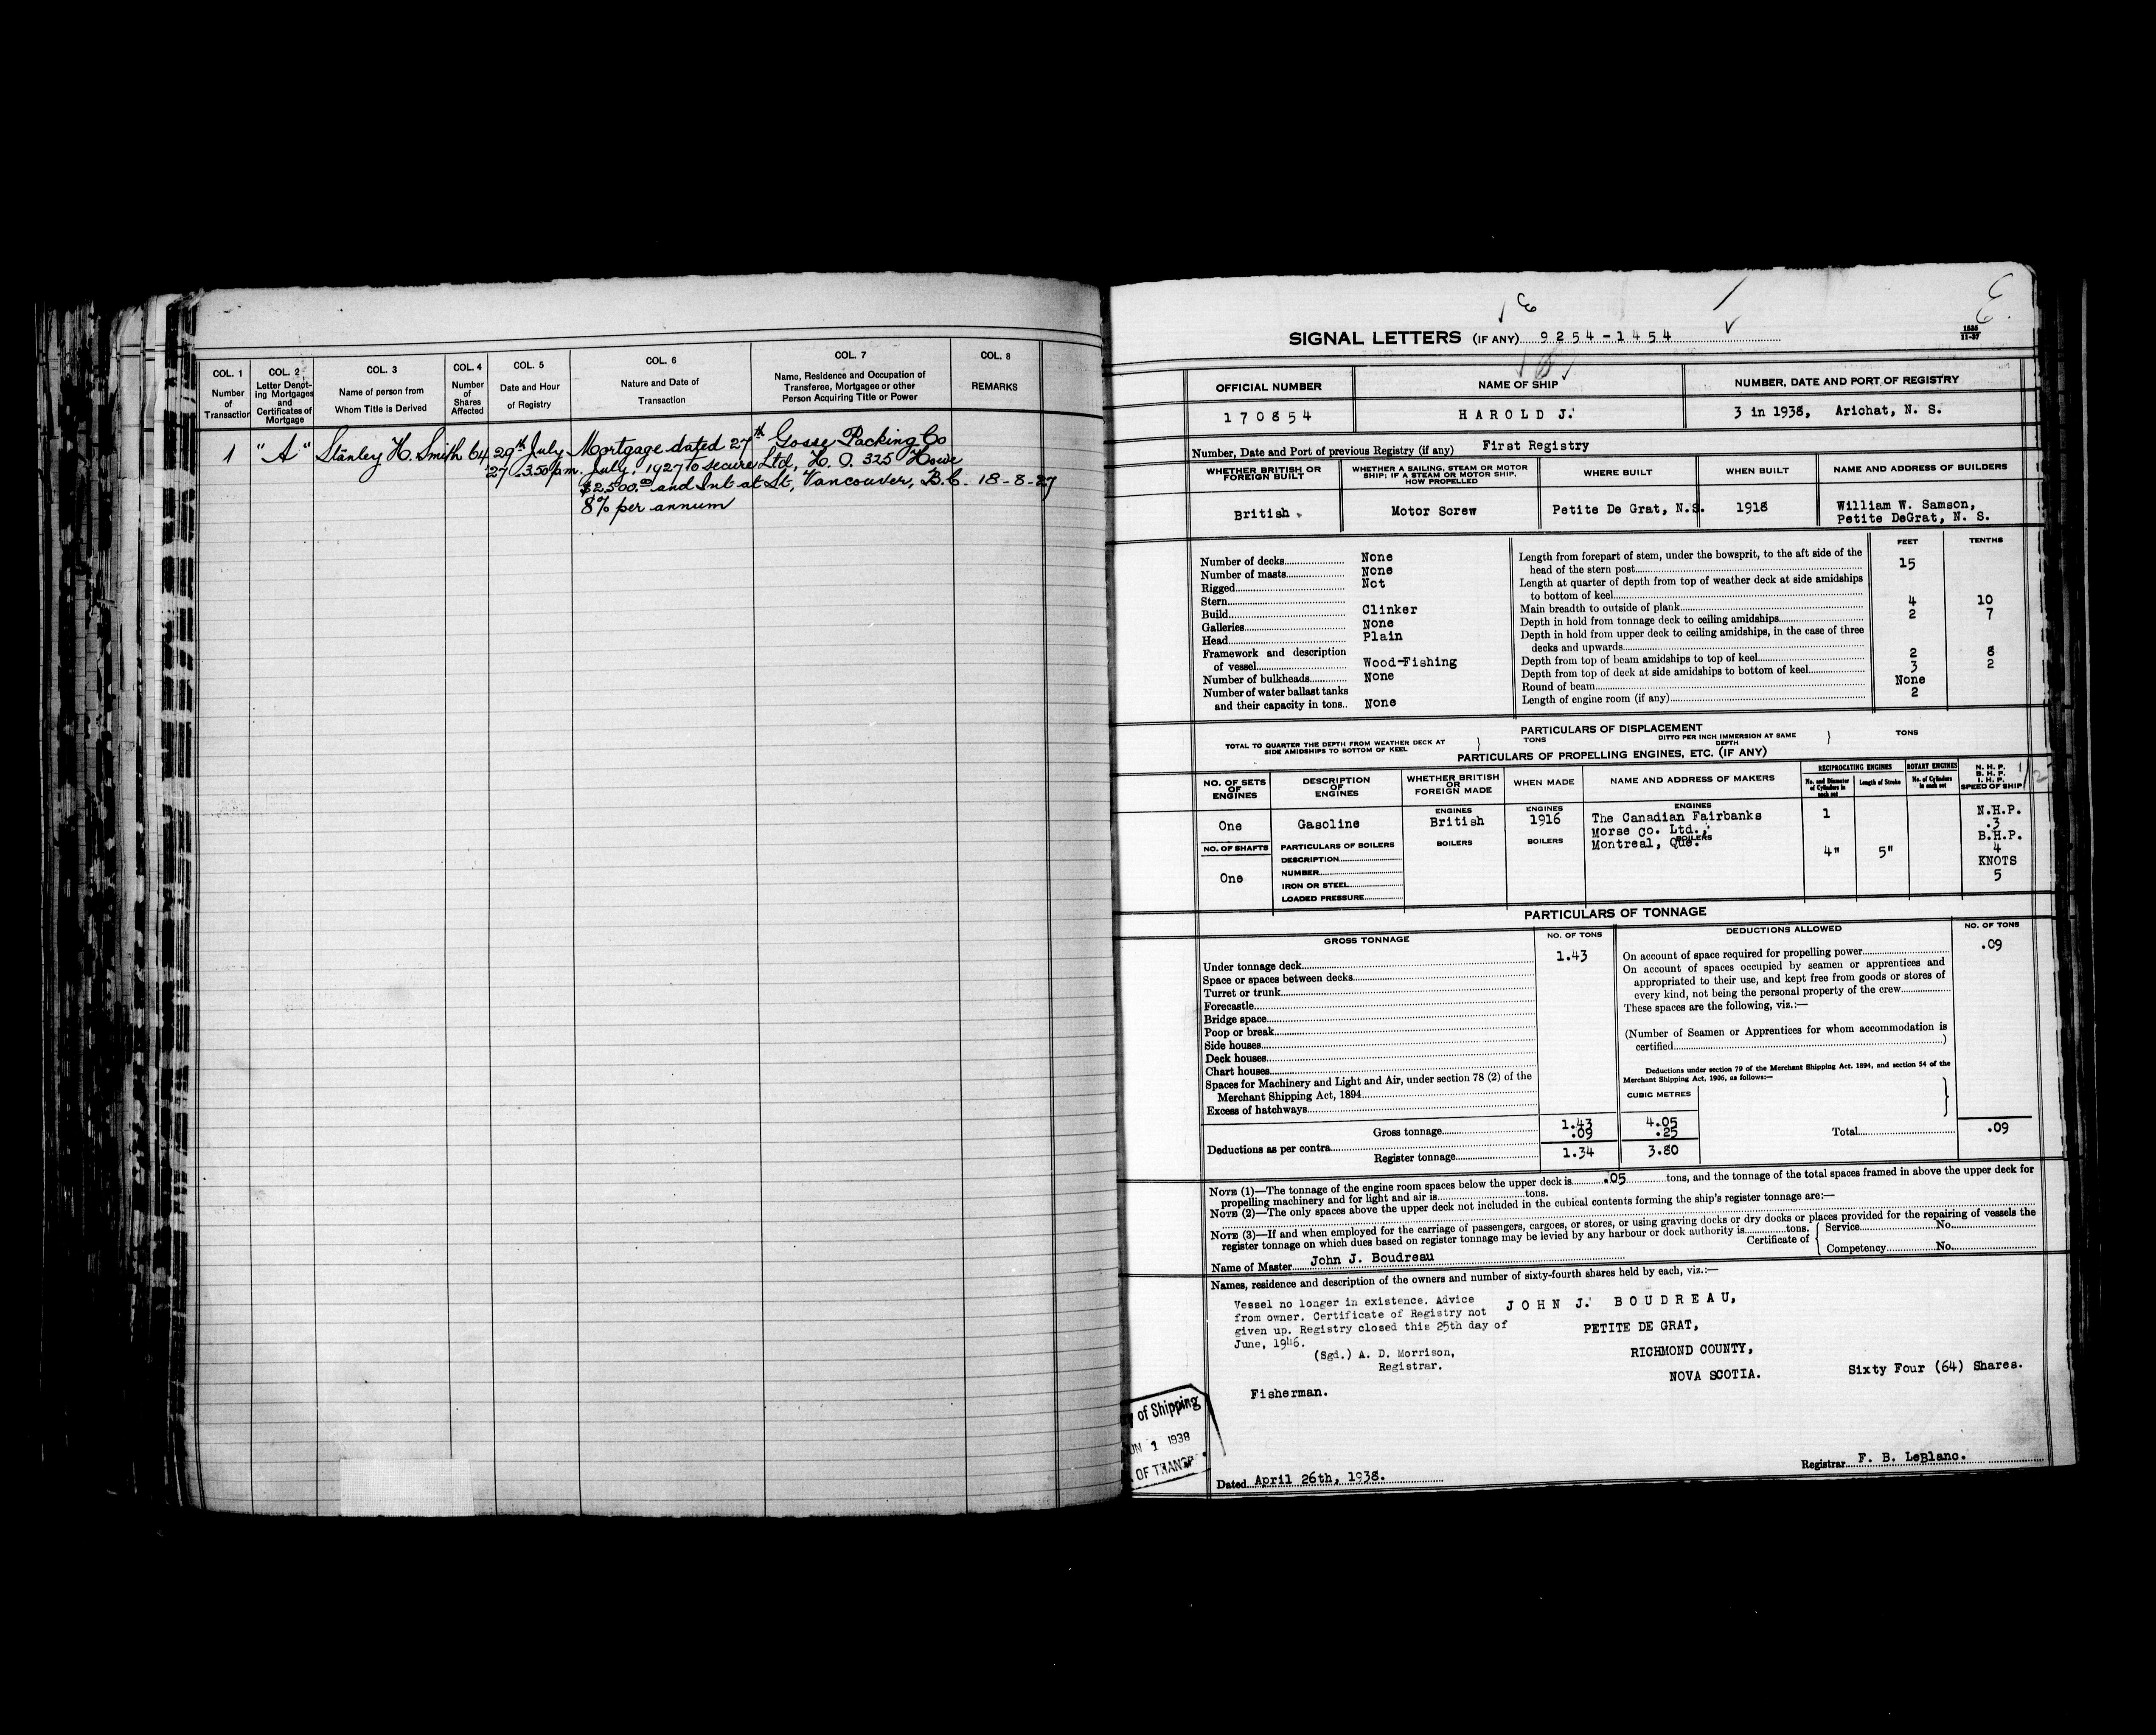 COL. 1
Number
of
Transaction
COL. 2
Letter Denot-
ing Mortgages
and
Certificates of
Mortgage
COL. 3
Name of person from
Whom Title is Derived
COL. 4
Number
of
Shares
Affected
COL. 5
Date and Hour
of Registry
COL. 6
Nature and Date of
Transaction
COL. 7
Name, Residence and Occupation of
Transferee, Mortgagee or other
Person Acquiring Title or Power
COL. 8
REMARKS
1 "A" Stanley H. Smith 64 29th July Mortgage dated 27th Gosse Packing Co
'27 3.50 p.m. July, 1927 to secure Ltd, H. O. 325 Howe
$2,500.00 and Int at St, Vancouver, B.C. 18-8-27
8% per annum
SIGNAL LETTERS (IF ANY) 9254-1454
1535
11-37
OFFICIAL NUMBER NAME OF SHIP NUMBER, DATE AND PORT OF REGISTRY
170854 HAROLD J. 3 in 1938, Arichat, N. S.
Number, Date and Port of previous Registry (if any) First Registry
WHETHER BRITISH OR
FOREIGN BUILT
WHETHER A SAILING, STEAM OR MOTOR
SHIP; IF A STEAM OR MOTOR SHIP,
HOW PROPELLED
WHERE BUILT
WHEN BUILT
NAME AND ADDRESS OF BUILDERS
British Motor Screw Petite De Grat, N.S. 1918 William W. Samson,
Petite DeGrat, N. S.
FEET TENTHS
Number of decks None
Number of masts None
Rigged Not
Stern
Build Clinker
Galleries None
Head Plain
Framework and description
of vessel Wood-Fishing
Number of bulkheads None
Number of water ballast tanks
and their capacity in tons.. None
Length from forepart of stem, under the bowsprit, to the aft side of the
head of the stern post 15
Length at quarter of depth from top of weather deck at side amidships
to bottom of keel
Main breadth to outside of plank 4 10
Depth in hold from tonnage deck to ceiling amidships 2 7
Depth in hold from upper deck to ceiling amidships, in the case of three
decks and upwards
Depth from top of beam amidships to top of keel 2 8
Depth from top of deck at side amidships to bottom of keel 3 2
Round of beam None
Length of engine room (if any) 2
PARTICULARS OF DISPLACEMENT
TOTAL TO QUARTER THE DEPTH FROM WEATHER DECK AT
SIDE AMIDSHIPS TO BOTTOM OF KEEL
TONS
DITTO PER INCH IMMERSION AT SAME
DEPTH
TONS
PARTICULARS OF PROPELLING ENGINES, ETC. (IF ANY)
NO. OF SETS
OF
ENGINES
DESCRIPTION
OF
ENGINES
WHETHER BRITISH
OR
FOREIGN MADE
WHEN MADE
NAME AND ADDRESS OF MAKERS
RECIPROCATING ENGINES
No. and Diameter
of Cylinders in
each set
Length of Stroke
ROTARY ENGINES
No. of Cylinders
in each set
N. H. P.
B. H. P.
I. H. P.
SPEED OF SHIP
1/2
ENGINES ENGINES ENGINES
One Gasoline British 1916 The Canadian Fairbanks
Morse Co. Ltd.,
Montreal, Que.
1
N.H.P.
.3
B.H.P.
4
KNOTS
5
NO. OF SHAFTS
One
PARTICULARS OF BOILERS
DESCRIPTION
NUMBER
IRON OR STEEL
LOADED PRESSURE
BOILERS BOILERS BOILERS
4" 5"
PARTICULARS OF TONNAGE
GROSS TONNAGE NO. OF TONS DEDUCTIONS ALLOWED NO. OF TONS
Under tonnage deck 1.43
Space or spaces between decks
Turret or trunk
Forecastle
Bridge space
Poop or break
Side houses
Deck houses
Chart houses
Spaces for Machinery and Light and Air, under section 78 (2) of the
Merchant Shipping Act, 1894
Excess of hatchways
Gross tonnage 1.43 4.05
Deductions as per contra .09 .25
Register tonnage 1.34 3.80
On account of space required for propelling power .09
On account of spaces occupied by seamen or apprentices and
appropriated to their use, and kept free from goods or stores of
every kind, not being the personal property of the crew
These spaces are the following, viz.:—
(Number of Seamen or Apprentices for whom accommodation is
certified)
Deductions under section 79 of the Merchant Shipping Act, 1894, and section 54 of the
Merchant Shipping Act, 1906, as follows:—
CUBIC METRES
Total .09
NOTE (1)—The tonnage of the engine room spaces below the upper deck is .05 tons, and the tonnage of the total spaces framed in above the upper deck for
propelling machinery and for light and air is tons.
NOTE (2)—The only spaces above the upper deck not included in the cubical contents forming the ship's register tonnage are:—
NOTE (3)—If and when employed for the carriage of passengers, cargoes, or stores, or using graving docks or dry docks or places provided for the repairing of vessels the
register tonnage on which dues based on register tonnage may be levied by any harbour or dock authority is tons.
Certificate of { Service No.
Competency No.
Name of Master John J. Boudreau
Names, residence and description of the owners and number of sixty-fourth shares held by each, viz.:—
Vessel no longer in existence. Advice
from owner. Certificate of Registry not
given up. Registry closed this 25th day of
June, 1946.
(Sgd.) A. D. Morrison,
Registrar.
JOHN J. BOUDREAU,
PETITE DE GRAT,
RICHMOND COUNTY,
NOVA SCOTIA.
Sixty Four (64) Shares.
Fisherman.
of Shipping
UN 1 1938
OF TRANSP
Dated April 26th, 1938.
Registrar F. B. LeBlanc.